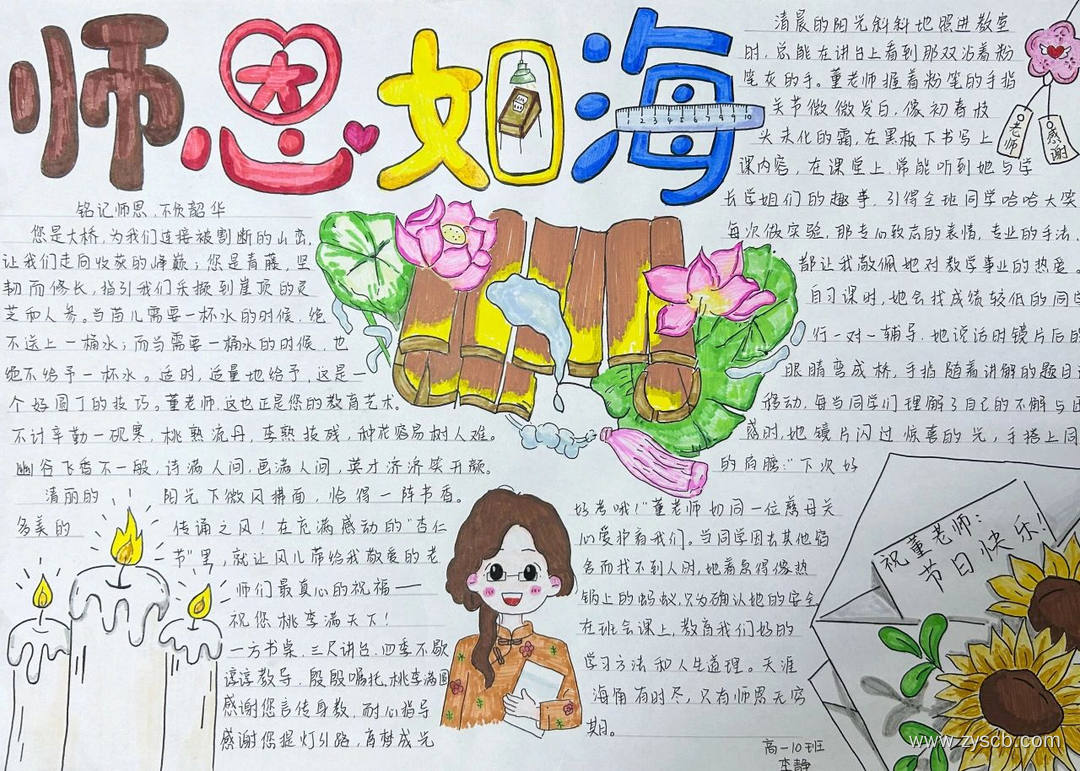 师恩如海
铭记师恩,不负韶华
您是大桥,为我们连接被割断的山峦,
让我们走向收获的峰巅;您是青藤,坚
韧而修长,指引我们采撷到崖顶的灵
芝和人参。当苗儿需要一杯水的时候,绝
不送上一桶水;而当需要一桶水的时候,也
绝不给予一杯水。适时,适量地给予,这是一
个好园丁的技巧。董老师,这也正是您的教育艺术。
不计辛勤一砚寒,桃熟流丹,李熟枝残,种花容易树人难。
幽谷飞香不一般,诗满人间,画满人间,英才济济笑开颜。
清丽的 阳光下微风拂面,恰得一阵书香。
多美的 传诵之风!在充满感动的“杏仁
节”里,就让风儿带给我敬爱的老
师们最真心的祝福——
祝您桃李满天下!
一方书桌,三尺讲台,四季不歇
谆谆教导,殷殷嘱托,桃李满园
感谢您言传身教,耐心指导
感谢您提灯引路,育梦成光
清晨的阳光斜斜地照进教室
时,总能在讲台上看到那双沾着粉
笔灰的手。董老师握着粉笔的手指
关节微微发白,像初春枝
头未化的霜,在黑板下书写上
课内容,在课堂上,常能听到她与学
长学姐们的趣事,引得全班同学哈哈大笑
每次做实验,那专心致志的表情,专业的手法,
都让我敬佩她对教学事业的热爱。
自习课时,她会找成绩较低的同学
行一对一辅导,她说话时镜片后的
眼睛弯成桥,手指随着讲解的题目
移动,每当同学们理解了自己的不解与
惑时,她镜片闪过惊喜的光,手搭上同
的肩膀:“下次好
好考哦!”董老师如同一位慈母关
心爱护着我们。当同学因去其他宿
舍而找不到人时,她着急得像热
锅上的蚂蚁,只为确认她的安全
在班会课上,教育我们好的
学习方法和人生道理。天涯
海角有时尽,只有师恩无穷
期。
老师
感谢
祝董老师:
节日快乐!
高一10班
李静
www.zyscb.com